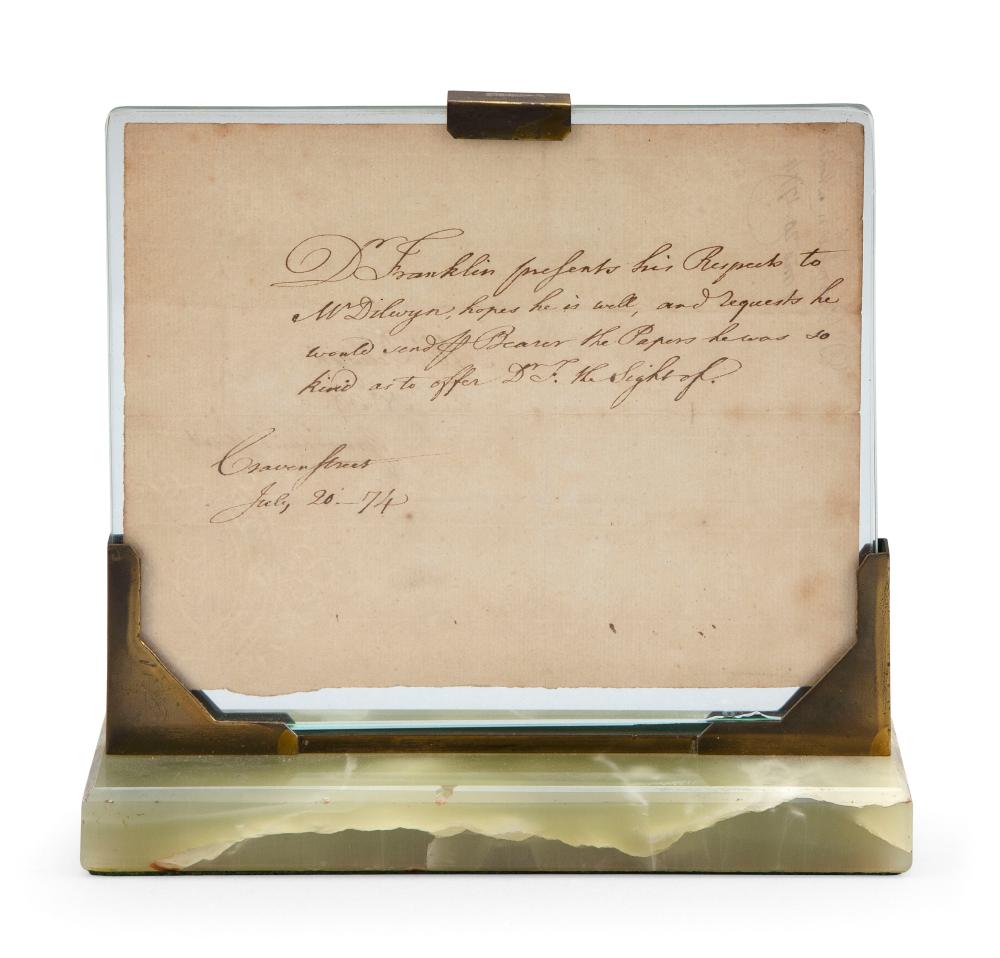 Dr Franklin presents his Respects to
Mr Dilwyn, hopes he is well, and requests he
would send Bearer the Papers he was so
kind as to offer Dr F. the Sight of.
Craven Street
July 20. -74